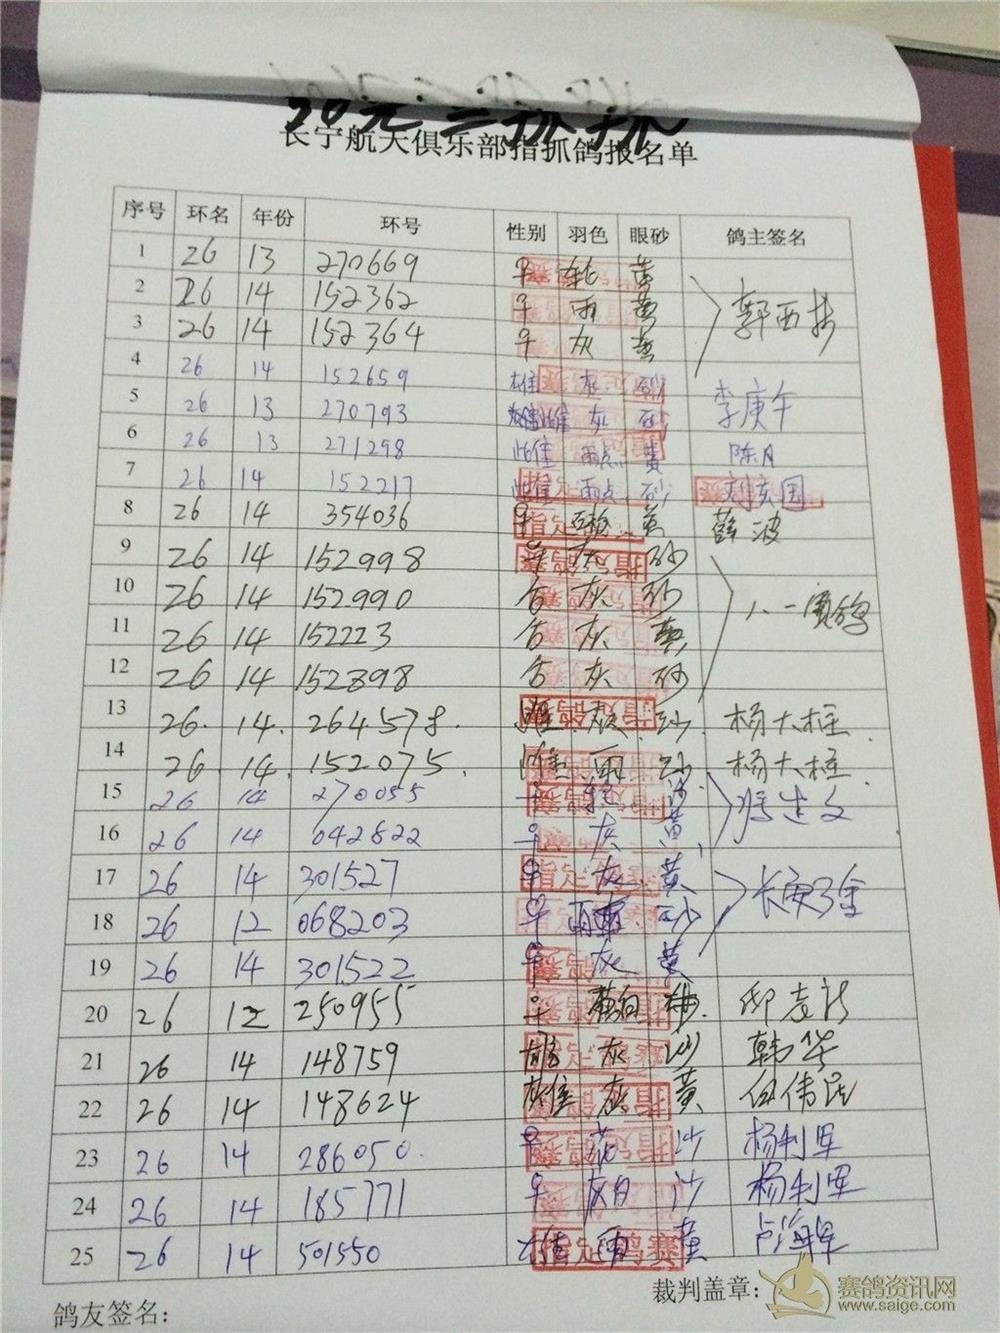 20元三抓抓
长宁航天俱乐部指抓鸽报名单
序号 环名 年份 环号 性别 羽色 眼砂 鸽主签名
1 26 13 270669 ♀ 黄
2 26 14 152362 ♀ 雨 黄
3 26 14 152364 ♀ 灰 黄
郭西
4 26 14 152659 雄 灰 砂
5 26 13 270793 雄 灰 砂 李庚午
6 26 13 271298 雄 雨点 黄 陈月
7 26 14 152217 雄 雨点 砂 刘玄国
8 26 14 354036 ♀ 黄 薛波
9 26 14 152998 ♀ 灰 砂
10 26 14 152990 灰 砂
八一赛鸽
11 26 14 152223 灰 黄
12 26 14 152898 灰 砂
13 26. 14. 264578. 雄 灰 砂 杨大柱.
14 26. 14. 152075. 雄 雨 砂 杨大柱.
15 26 14 270055 ♀ 沙
16 26 14 042822 ♀ 灰 黄
17 26 14 301527 ♀ 灰 黄
18 26 12 068203 ♀ 砂
19 26 14 301522 ♀ 灰 黄
20 26 12 250955 ♀
21 26 14 148759 灰 沙 韩华
22 26 14 148624 雄 灰 黄 伍伟民
23 26 14 286050. ♀ 花 沙 杨利军
24 26 14 185771 ♀ 灰白 沙 杨利军
25 26 14 501550 雄 雨 黄 卢海军
裁判盖章：
鸽友签名：
赛鸽资讯网
www.saige.com